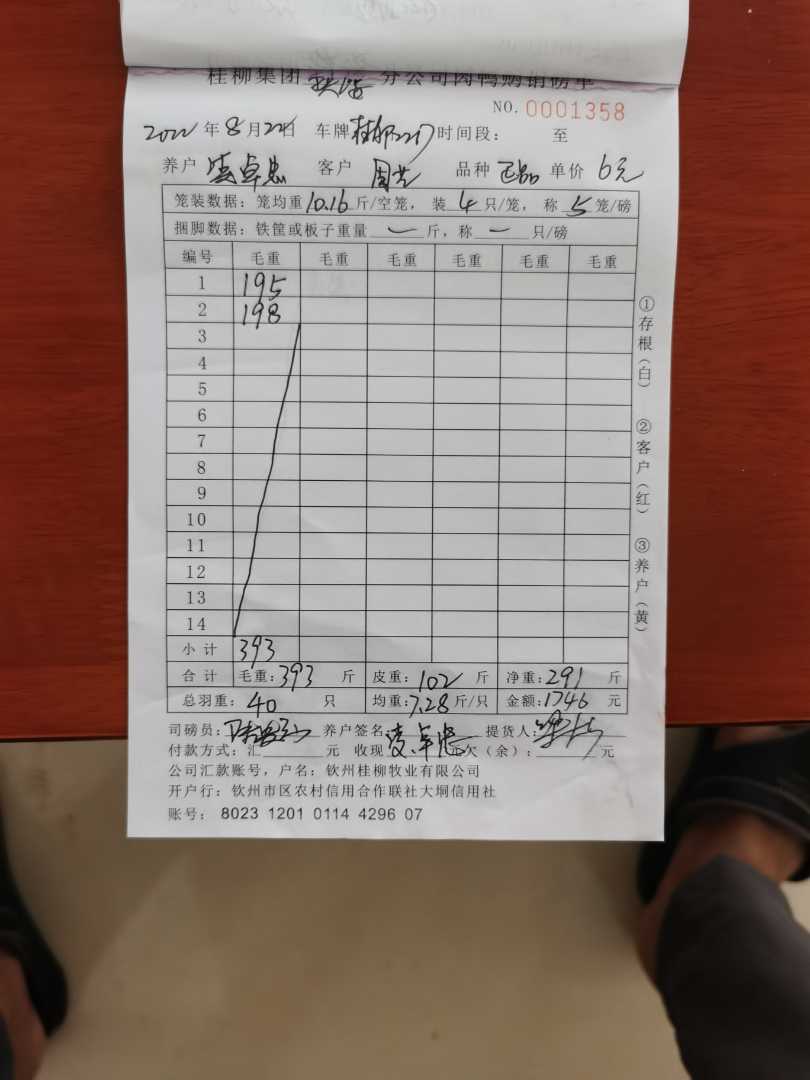 桂柳集团 钦海 分公司肉鸭购销磅单
NO. 0001358
2022年8月22日 车牌 桂柳227 时间段: 至
养户 凌卓忠 客户 周芒 品种 正品 单价 6元
笼装数据: 笼均重 10.16 斤/空笼, 装 4 只/笼, 称 5 笼/磅
捆脚数据: 铁筐或板子重量 — 斤, 称 — 只/磅
编号 毛重 毛重 毛重 毛重 毛重 毛重
1 195
2 198
3
4
5
6
7
8
9
10
11
12
13
14
小计 393
合计 毛重: 393 斤 皮重: 102 斤 净重: 291 斤
总羽重: 40 只 均重: 7.28 斤/只 金额: 1746 元
司磅员: 养户签名: 凌卓忠 提货人:
付款方式: 汇 元 收现 元欠(余): 元
公司汇款账号, 户名: 钦州桂柳牧业有限公司
开户行: 钦州市区农村信用合作联社大垌信用社
账号: 8023 1201 0114 4296 07
①存根(白)
②客户(红)
③养户(黄)